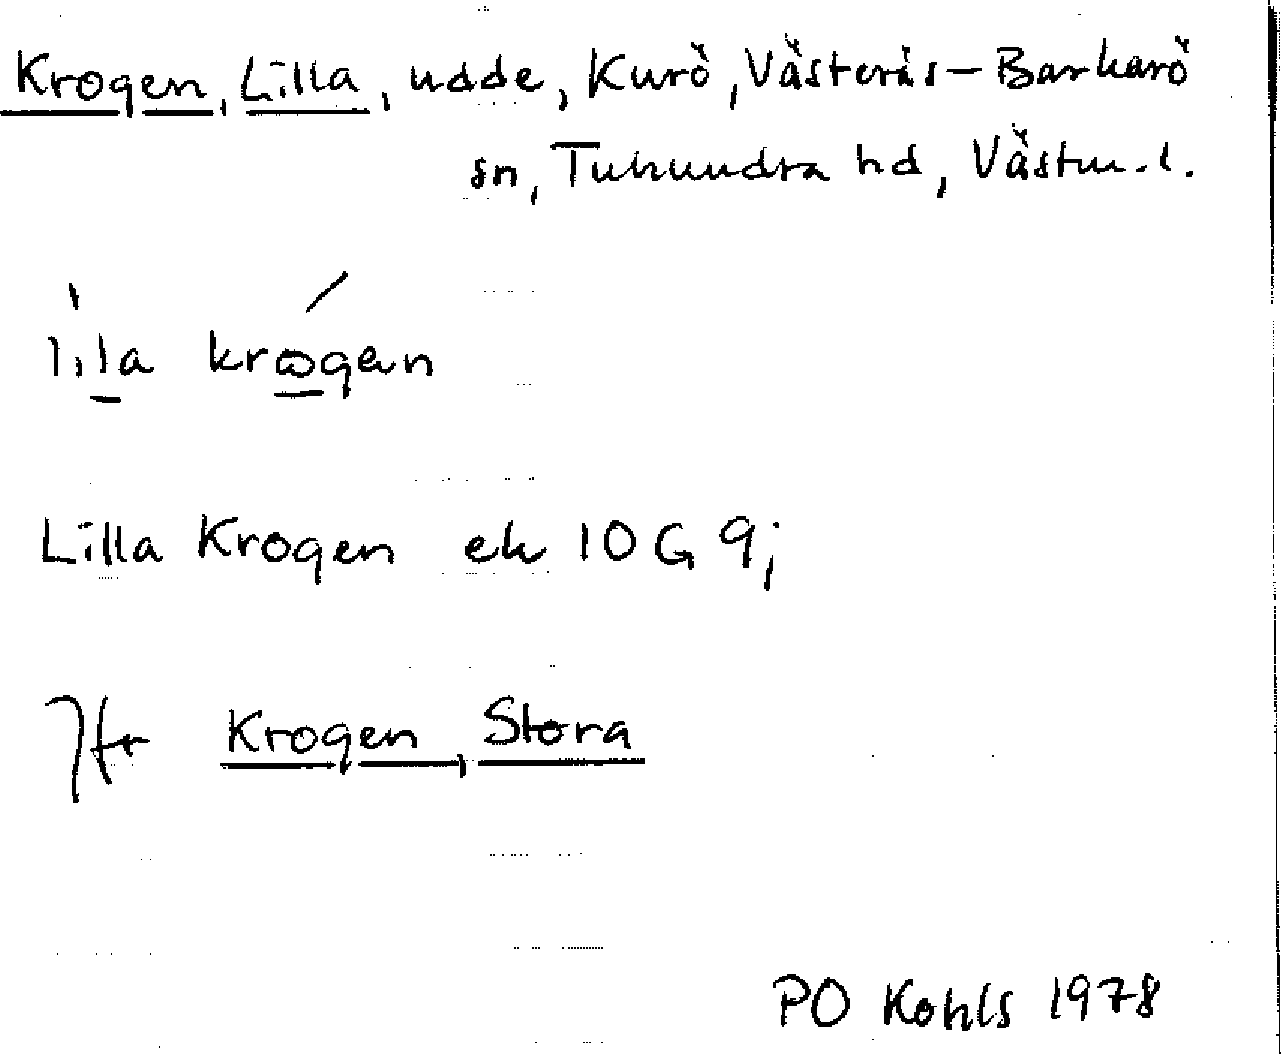 Krogen, Lilla, udde, Kurö, Västerås-Barkarö
sn, Tuhundra hd, Västm. l.
lila krogen
Lilla Krogen ek 10 G 9j
Jfr Krogen, Stora
PO Kohls 1978